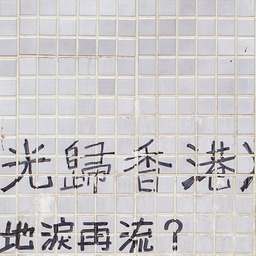 光歸香港
地淚再流？